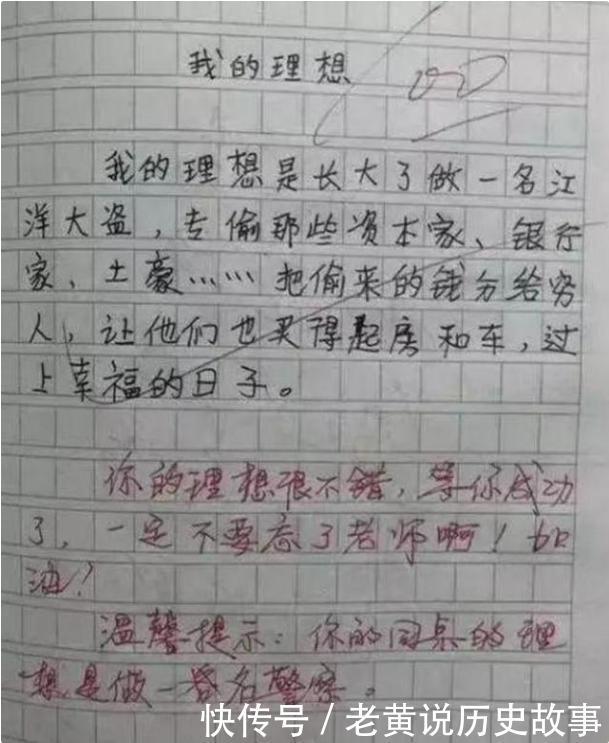 我的理想
我的理想是长大了做一名江
洋大盗,专偷那些资本家、银行
家、土豪……把偷来的钱分给穷
人,让他们也买得起房和车,过
上幸福的日子。
你的理想很不错,等你成功
了,一定不要忘了老师啊!加
油!
温馨提示:你的同桌的理
想是做一名警察。
快传号/老黄说历史故事